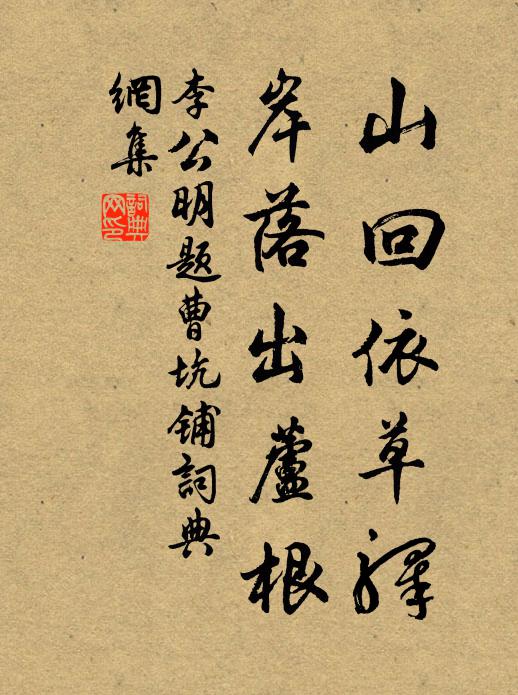 山回依草驛
岸落出蘆根
李公明題曹坑鋪詞典
網集
詞典
网印